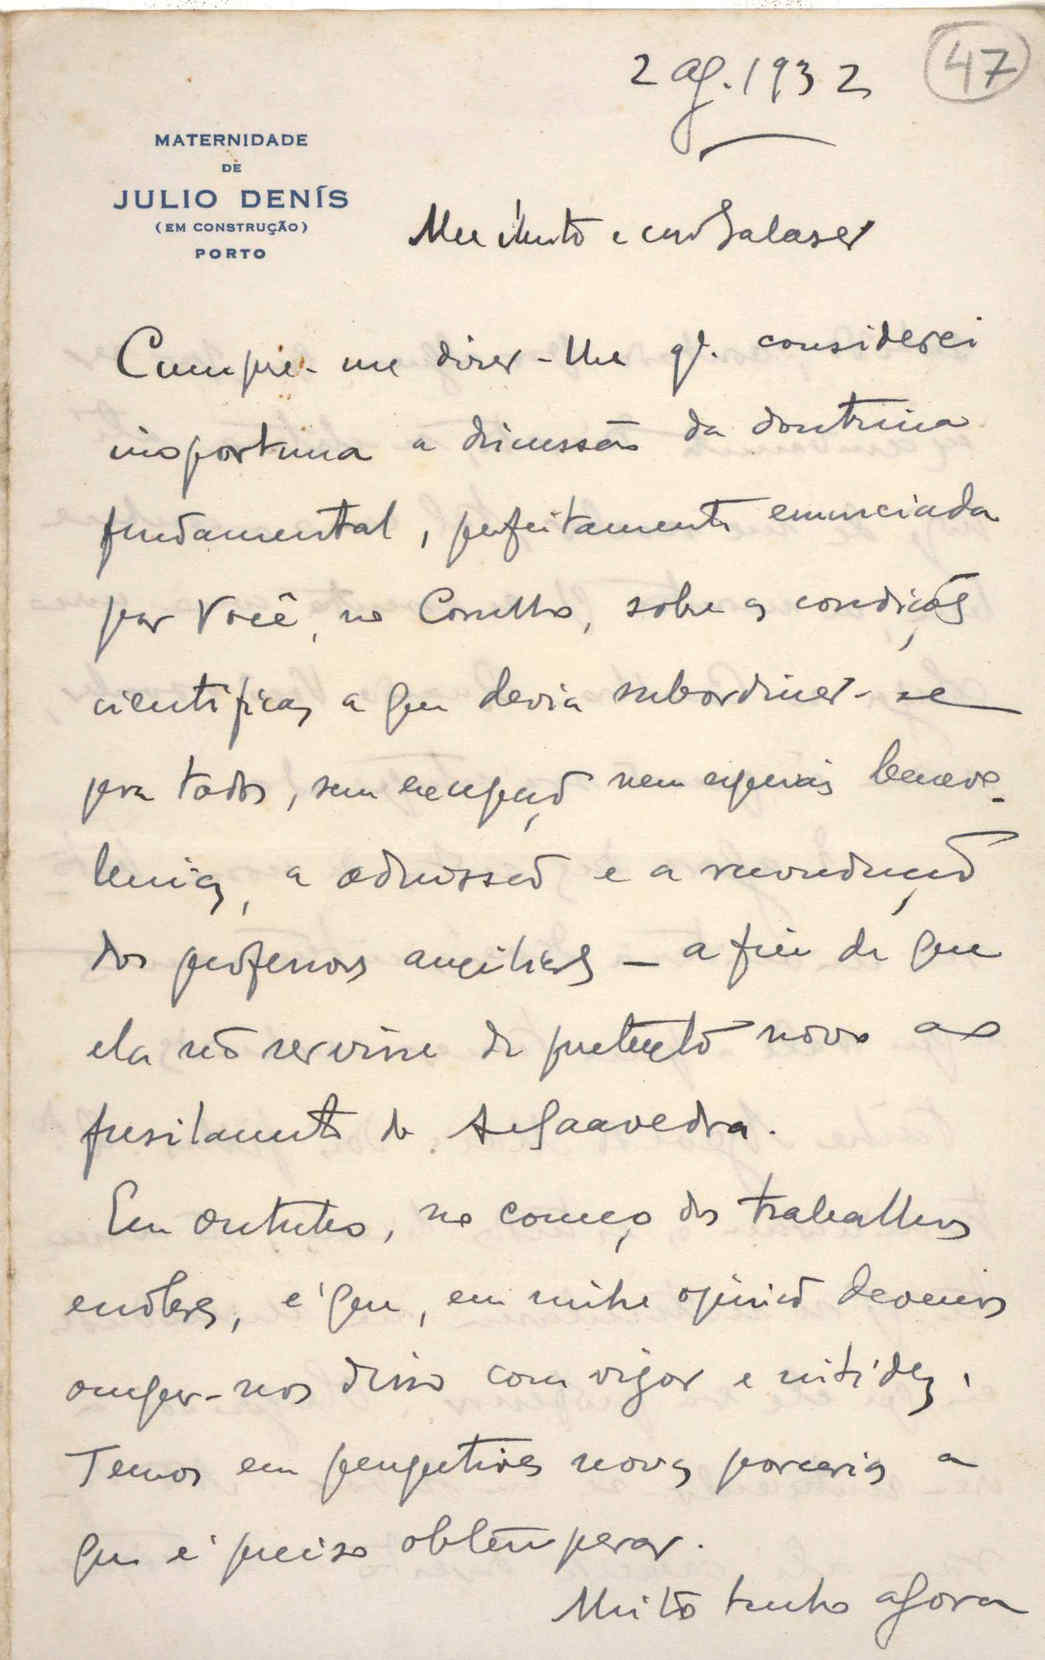 2 ag. 1932
47
MATERNIDADE
DE
JULIO DENÍS
(EM CONSTRUÇÃO)
PORTO
Meu ilustre e caro Salazar
Cumpre-me dizer-lhe q. considerei
inoportuna a discussão da doutrina
fundamental, perfeitamente enunciada
por Você, no Conselho, sobre as condições
cientificas a que devia subordinar-se
para todos, sem excepção nem especiais benevo-
lencias, a admissão e a recondução
dos professores auxiliares — a fim de que
ela não servisse de pretexto novo ao
fusilamento do A. Saavedra.
Em outubro, no começo dos trabalhos
escolares, é que, em minha opinião devemos
ocupar-nos disso com vigor e nitidez.
Temos em perspectivas novas parcerias a
que é preciso obtemperar.
Muito tenho agora